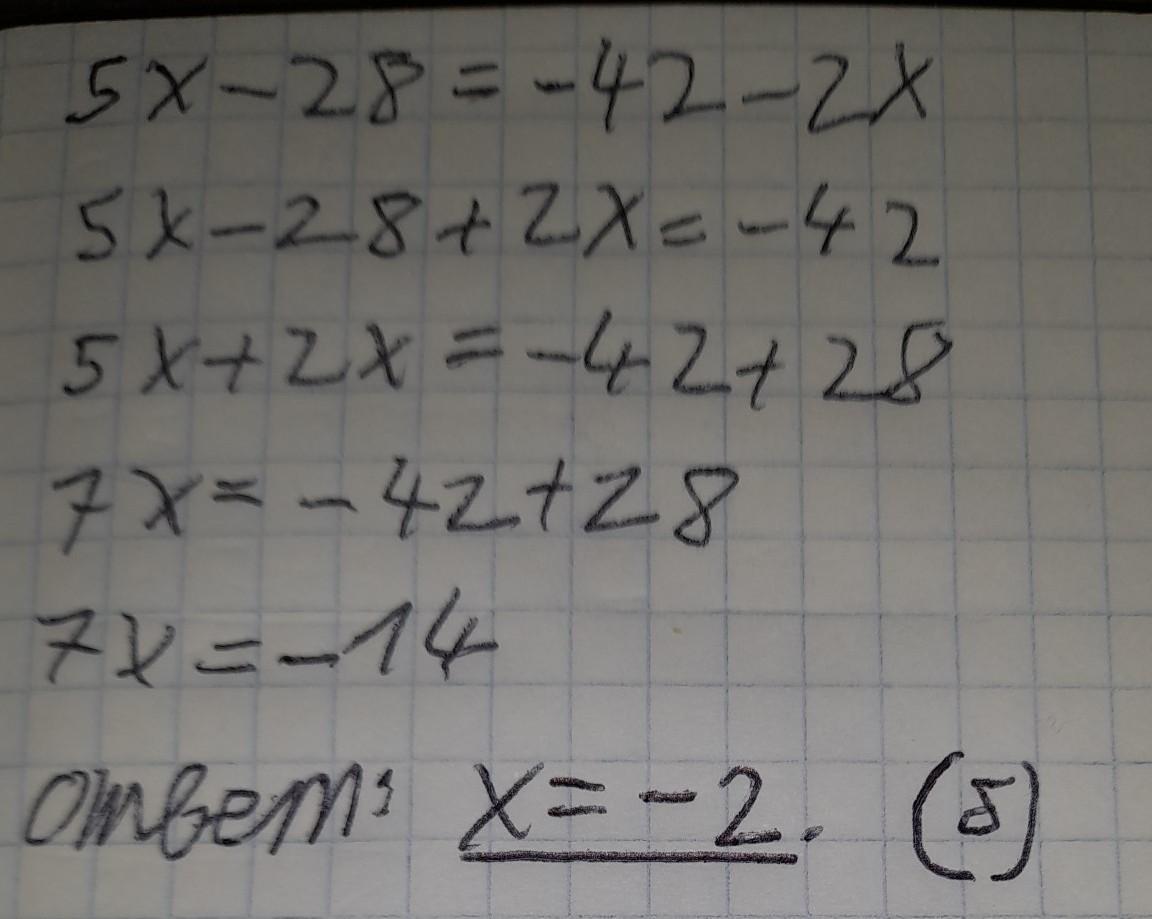 5x-28=-42-2x
5x-28+2x=-42
5x+2x=-42+28
7x=-42+28
7x=-14
Ответ: x=-2. (5)